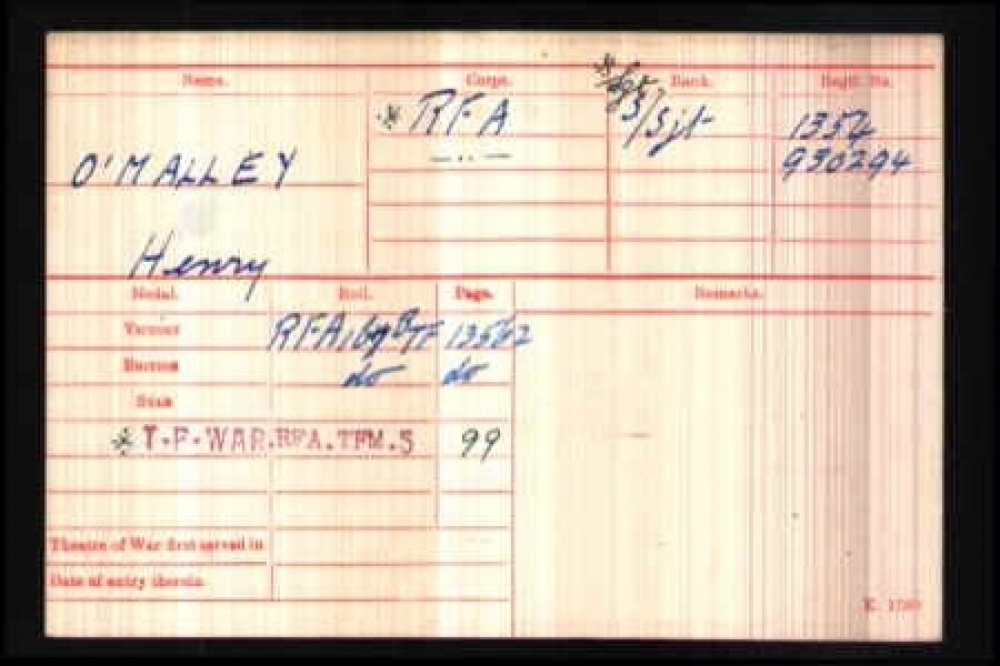 Name. Corps. Rank. Regtl. No.
* RFA * Sgt S/Sjt 1354
O'MALLEY — .. — 930294
Henry
Medal. Roll. Page. Remarks.
Victory RFA/169B TF 13562
British do do
Star
* T.F.WAR.RFA.TFM.5 99
Theatre of War first served in
Date of entry therein
K. 1380